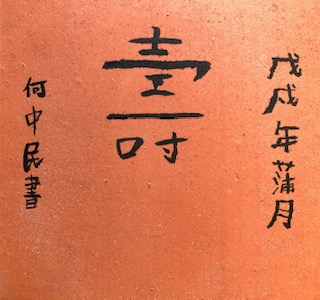 戊戌年蒲月
壽
何中民書